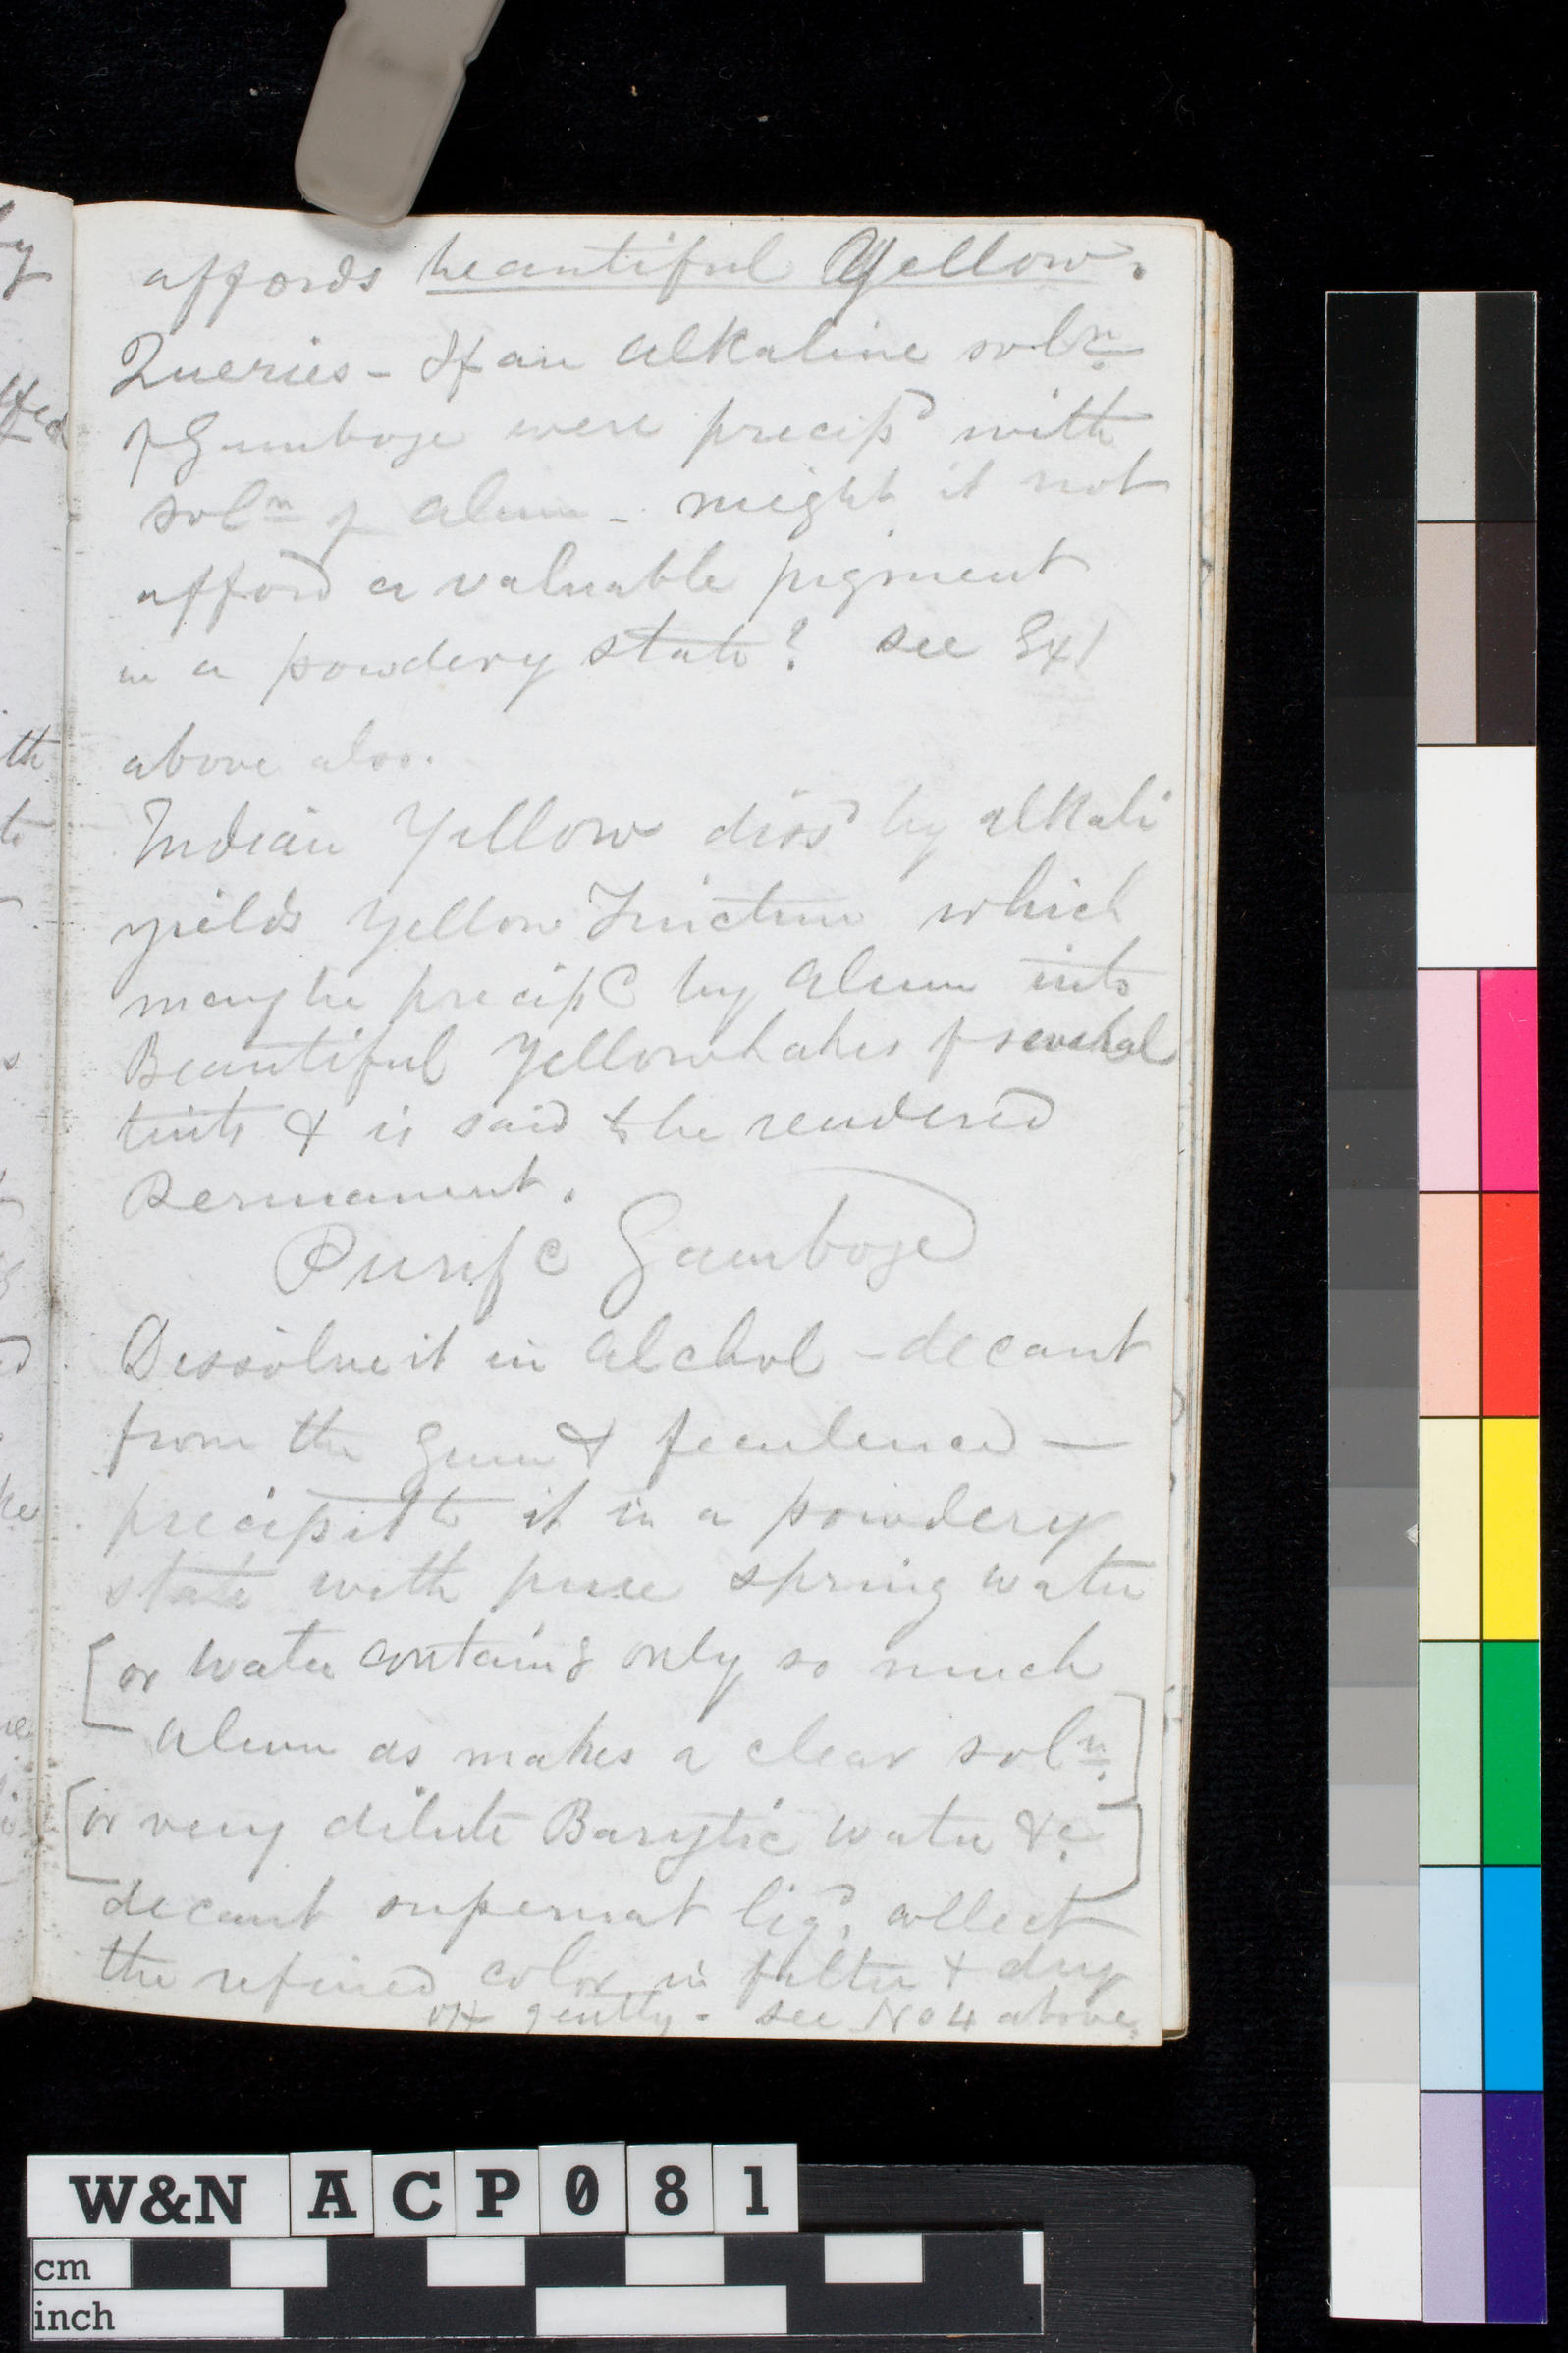 affords beautiful Yellow.
Queries - If an alkaline solⁿ.
of Gumboge were precipᵈ with
solⁿ of alum - might it not
afford a valuable pigment
in a powdery state? see Ex 1
above also.
Indian Yellow dissᵈ by alkali
yields Yellow Tincture which
may be precipᵈ by alum into
Beautiful Yellow Lakes of several
tints & is said to be rendered
Permanent.
Purifᵈ Gamboge
Dissolve it in alchol - decant
from the Gum & feculence —
precipitate it in a powdery
state with pure spring water
[or water containᵍ only so much
alum as makes a clear solⁿ.]
[or very dilute Barytic water &c.]
decant supernat liqᵈ, collect
the refined color in filter & dry
off gently - see No 4 above.
W&N ACP081
cm
inch